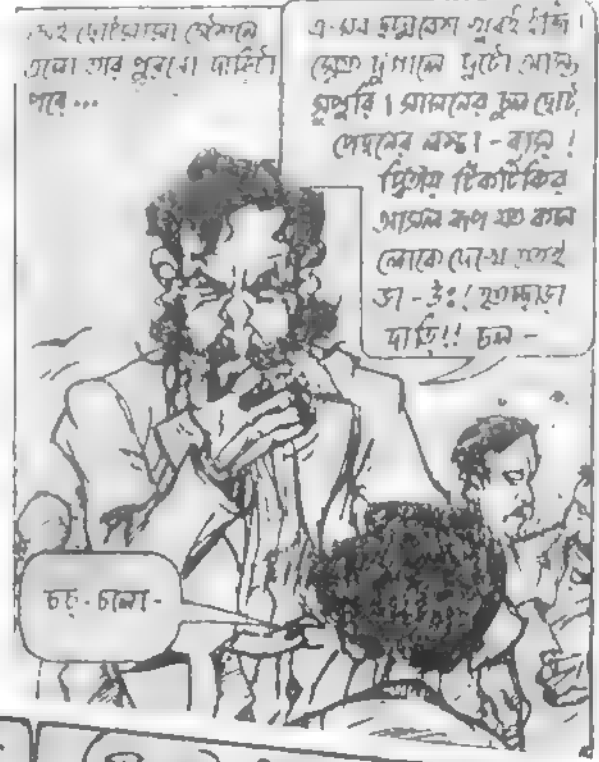 সেই ছোটমামা স্টেশনে
এলো তার পুরনো দাড়িটা
পরে ...
এ-সব ছদ্মবেশ খুবই ইজি।
স্রেফ দু গালে দুটো আস্ত
সুপুরি। সামনের চুল ছোট,
পেছনের লম্বা - ব্যস!
দ্বিতীয় টিকটিকির
আসল রূপ যত কম
লোকে দেখে ততই
ভা - উঃ! হতচ্ছাড়া
দাড়ি!! চল -
চচ্ - চলো -